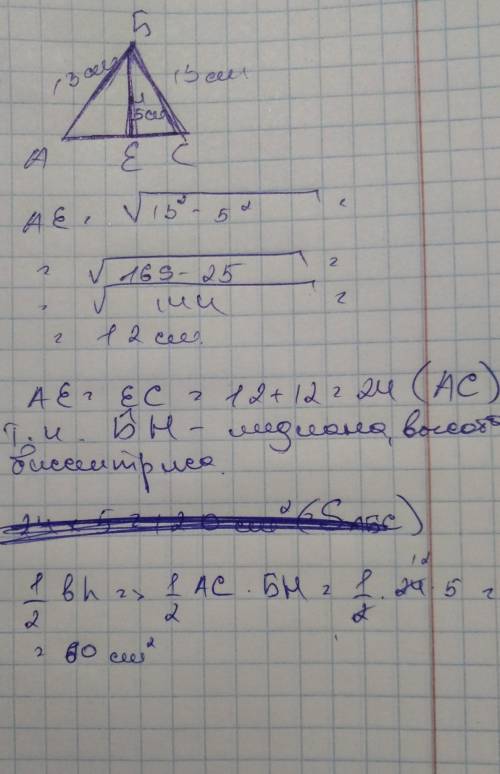 Б
13 см 13 см
5 см
А Е С
АЕ = √13² - 5² =
= √169 - 25 =
= √144 =
= 12 см.
АЕ = ЕС = 12 + 12 = 24 (АС)
т.к. БН - медиана, высота
биссектриса.
24 × 5 = 120 см² (S АБС)
1/2 bh => 1/2 АС · БН = 1/2 · 24 12 · 5 =
= 60 см²